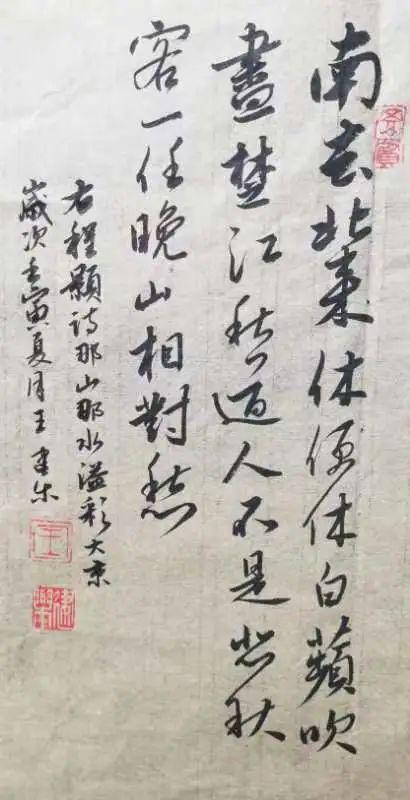 南去北来休便休白蘋吹
盡楚江秋道人不是悲秋
客一任晚山相對愁
右程顥诗那山那水溢彩大京
歲次壬寅夏月王建乐
王
建樂